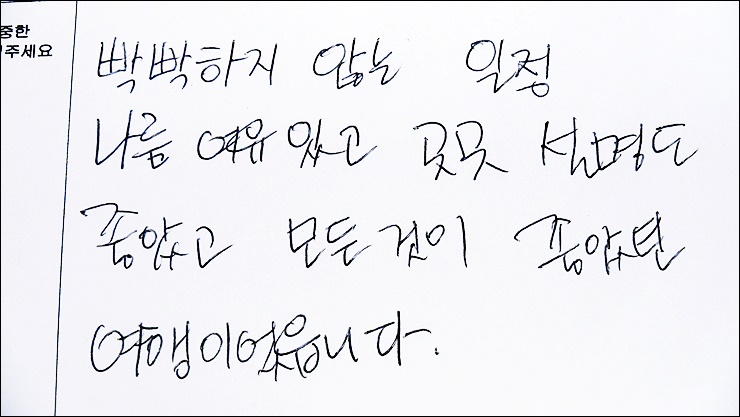 중한
주세요
빡빡하지 않는 일정
나름 여유있고 곳곳 설명도
좋았고 모든것이 좋았던
여행이었읍니다.